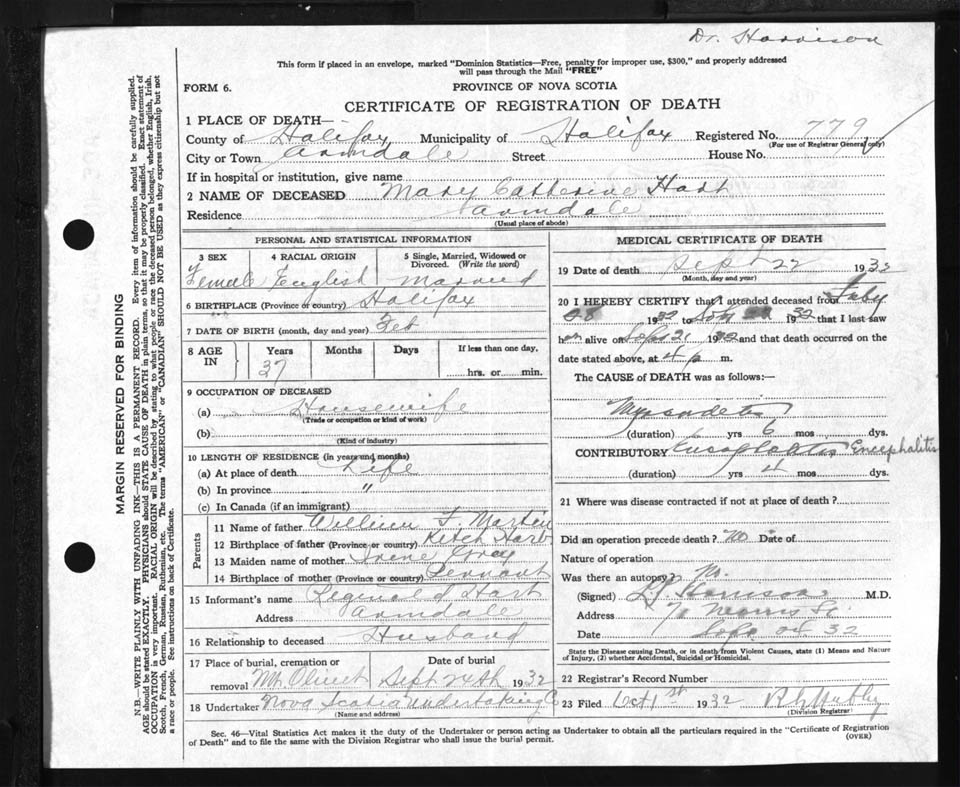 Dr. Harrison
This form if placed in an envelope, marked "Dominion Statistics—Free, penalty for improper use, $300," and properly addressed
will pass through the Mail "FREE"
FORM 6.
PROVINCE OF NOVA SCOTIA
CERTIFICATE OF REGISTRATION OF DEATH
1 PLACE OF DEATH—
County of Halifax Municipality of Halifax Registered No. 779
(For use of Registrar General only)
City or Town Armdale Street House No.
If in hospital or institution, give name
2 NAME OF DECEASED Mary Catherine Hart
Residence Armdale
(Usual place of abode)
PERSONAL AND STATISTICAL INFORMATION
3 SEX 4 RACIAL ORIGIN 5 Single, Married, Widowed or
Divorced. (Write the word)
Female English Married
6 BIRTHPLACE (Province or country) Halifax
7 DATE OF BIRTH (month, day and year) Feb
8 AGE IN Years Months Days If less than one day,
37 hrs. or min.
9 OCCUPATION OF DECEASED
(a) Housewife
(Trade or occupation or kind of work)
(b)
(Kind of industry)
10 LENGTH OF RESIDENCE (in years and months)
(a) At place of death Life
(b) In province "
(c) In Canada (if an immigrant)
Parents
11 Name of father William F. Martin
12 Birthplace of father (Province or country) Ketch Harb
13 Maiden name of mother Irene Gray
14 Birthplace of mother (Province or country) Pennant
15 Informant's name Reginald Hart
Address Armdale
16 Relationship to deceased Husband
17 Place of burial, cremation or Date of burial
removal Mt. Olivet Sept 24th 1932
18 Undertaker Nova Scotia Undertaking Co
(Name and address)
MEDICAL CERTIFICATE OF DEATH
19 Date of death Sept 22 1932
(Month, day and year)
20 I HEREBY CERTIFY that I attended deceased from
28 1932 to 1932 that I last saw
h alive on Sept 21 1932 and that death occurred on the
date stated above, at 4 p m.
The CAUSE of DEATH was as follows:—
(duration) yrs 6 mos dys.
CONTRIBUTORY Encephalitis Encephalitis
(duration) yrs 4 mos dys.
21 Where was disease contracted if not at place of death?
Did an operation precede death? No Date of
Nature of operation
Was there an autopsy? No
(Signed) Harrison M.D.
Address Morris St
Date 32
State the Disease causing Death, or in death from Violent Causes, state (1) Means and Nature
of Injury, (2) whether Accidental, Suicidal or Homicidal.
22 Registrar's Record Number
23 Filed Oct 1st 1932
(Division Registrar)
Sec. 46—Vital Statistics Act makes it the duty of the Undertaker or person acting as Undertaker to obtain all the particulars required in the "Certificate of Registration
of Death" and to file the same with the Division Registrar who shall issue the burial permit.
(OVER)
MARGIN RESERVED FOR BINDING
N.B.—WRITE PLAINLY WITH UNFADING INK—THIS IS A PERMANENT RECORD. Every item of information should be carefully supplied.
AGE should be stated EXACTLY. PHYSICIANS should STATE CAUSE OF DEATH in plain terms, so that it may be properly classified. Exact statement of
OCCUPATION is very important. RACIAL ORIGIN will be described by stating to what people or race the deceased person belonged, whether English, Irish,
Scotch, French, German, Russian, Ruthenian, etc. The terms "AMERICAN" or "CANADIAN" SHOULD NOT BE USED as they express citizenship but not
a race or people. See instructions on back of Certificate.